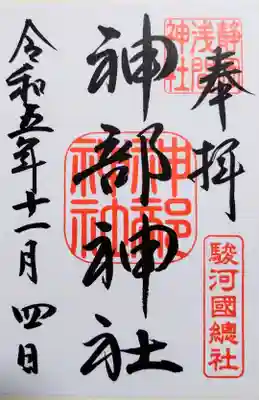 奉拝
静岡
浅間
神社
駿河國總社
神部神社
神部
神社
令和五年十一月四日